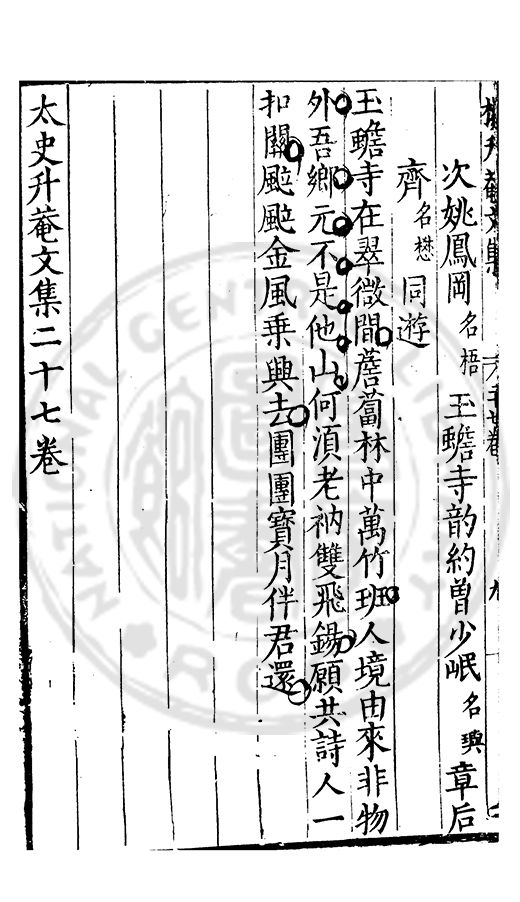 次姚鳳岡名梧玉蟾寺韵約曽少岷名璵章后
齋名懋同遊
玉蟾寺在翠微間薝蔔林中萬竹班人境由來非物
外吾鄉元不是他山何湏老衲雙飛錫願共詩人一
扣關颭颭金風乗興去團團寳月伴君還
太史升菴文集二十七卷